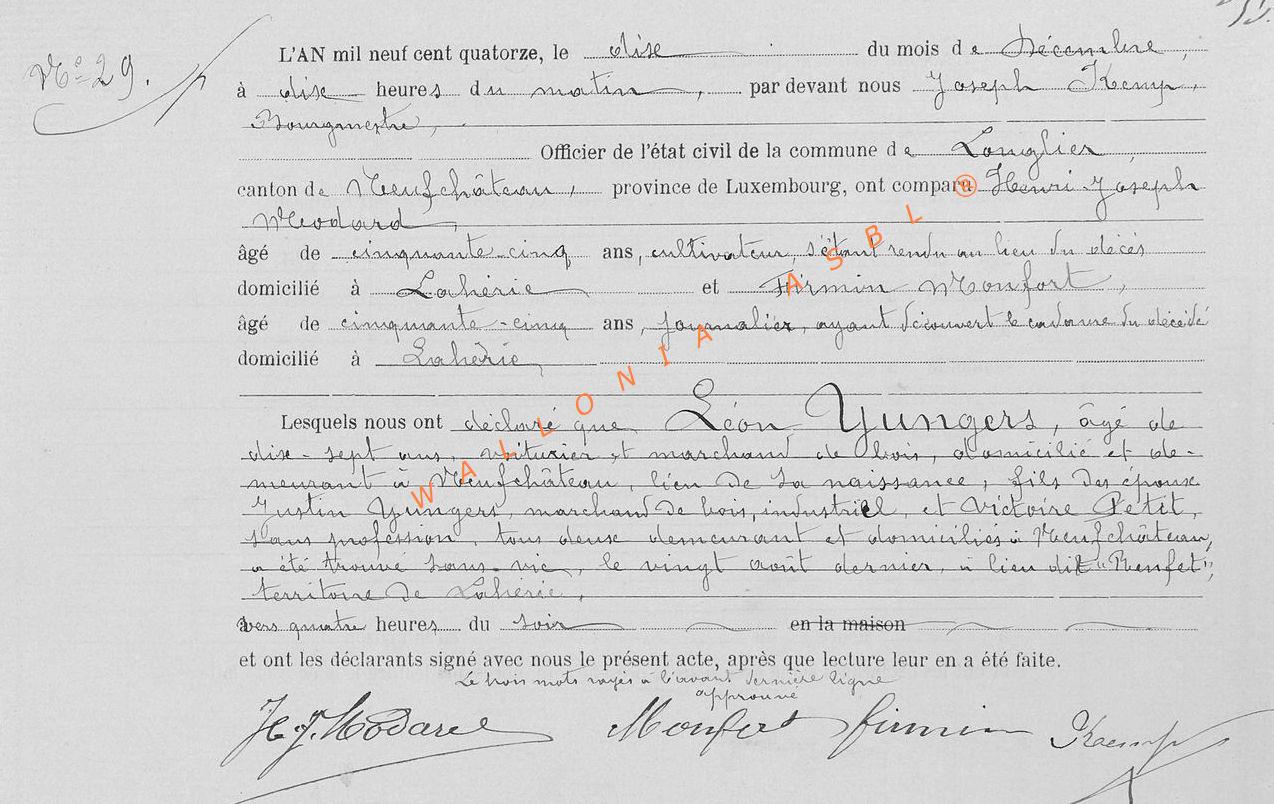 Nº 29.
L'AN mil neuf cent quatorze, le dix du mois de Décembre,
à dix heures du matin, par devant nous Joseph Kemp,
Bourgmestre,
Officier de l'état civil de la commune de Longlier,
canton de Neufchâteau, province de Luxembourg, ont comparu Henri Joseph
Modard,
âgé de cinquante-cinq ans, cultivateur, s'étant rendu au lieu du décès
domicilié à Lahérie et Firmin Monfort,
âgé de cinquante-cinq ans, journalier, ayant découvert le cadavre du décédé
domicilié à Lahérie,
Lesquels nous ont déclaré que Léon Yungers, âgé de
dix-sept ans, voiturier et marchand de bois, domicilié et de-
meurant à Neufchâteau, lieu de sa naissance, fils des époux
Justin Yungers, marchand de bois, industriel, et Victoire Petit,
sans profession, tous deux demeurant et domiciliés à Neufchâteau,
a été trouvé sans vie, le vingt août dernier, à lieu dit
territoire de Lahérie,
vers quatre heures du soir en la maison
et ont les déclarants signé avec nous le présent acte, après que lecture leur en a été faite.
Le trois mots rayés à l'avant dernière ligne
approuvé
H. J. Modard Monfort firmin Kemp
WALLONIA ASBL ®